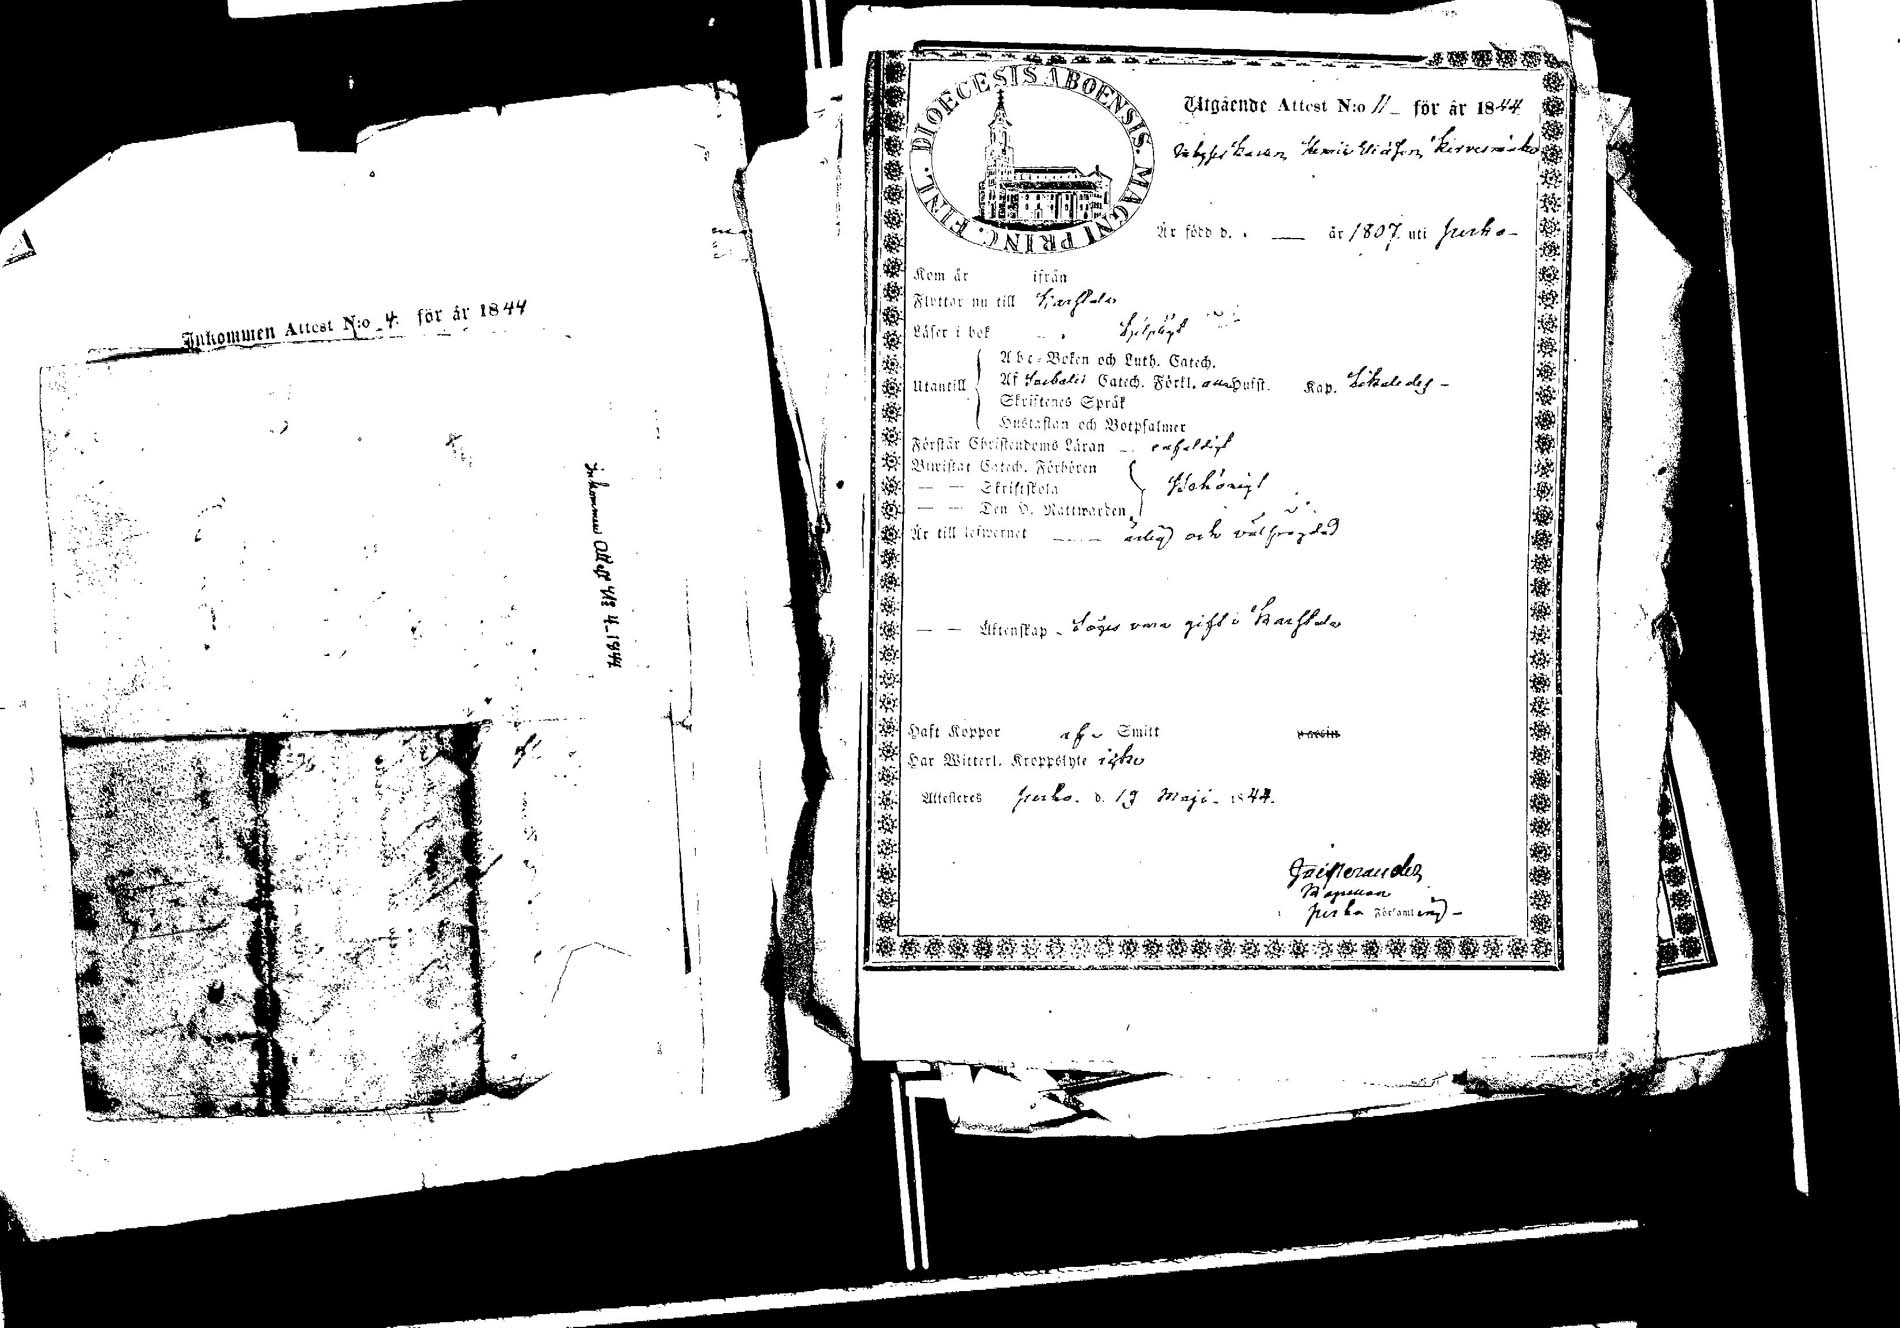 Inkommen Attest N:o 4. för år 1844
Inkommen Attest N:o 4. 1844
DIOECESIS ABOENSIS. MAGNI PRINC. FINL.
Utgående Attest N:o 11 – för år 1844
Henric
Är född d. — år 1807. uti Jurko –
Kom år ifrån
Flyttar nu till Karstula
Läser i bok
Utantill
Abc-Boken och Luth. Catech.
Af Catech. Förkl. Hufst. Kap. likaledes –
Skriftenes Språk
Hustaflan och Botpsalmer
Förstår Christendoms Läran – enfaldigt
Bivistat Catech. Förhören
— — Skriftskola
— — Den H. Nattwarden
behörigt
Är till lefwernet — ärlig och välfrägdad
— — Äktenskap – Säges vara gift i Karstula
Haft Koppor af – Smitt vaccin
Har Witterl. Kroppslyte icke
Attesteras Jurko. d. 19 Maji – 1844.
Kapellan
Jurko Församling –